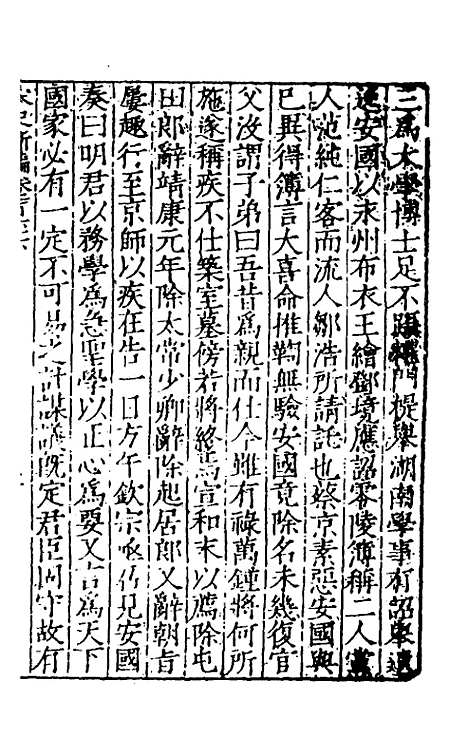 三爲太學博士足不躡權門提舉湖南學事有詔舉遺
逸安國以永州布衣王繪鄧璋應詔零陵簿稱二人黨
人范純仁客而流人鄒浩所請託也蔡京素惡安國與
已異得簿言大喜命推鞫無驗安國竟除名未幾復官
父沒謂子弟曰吾昔爲親而仕今雖有祿萬鍾將何所
施遂稱疾不仕築室墓傍若將終焉宣和末以薦除屯
田郎辭靖康元年除太常少卿辭除起居郎又辭朝旨
屢趣行至京師以疾在告一日方午欽宗亟召見安國
奏曰明君以務學爲急聖學以正心爲要又言爲天下
國家必有一定不可易之計謀議既定君臣固守故有
宋史新編卷